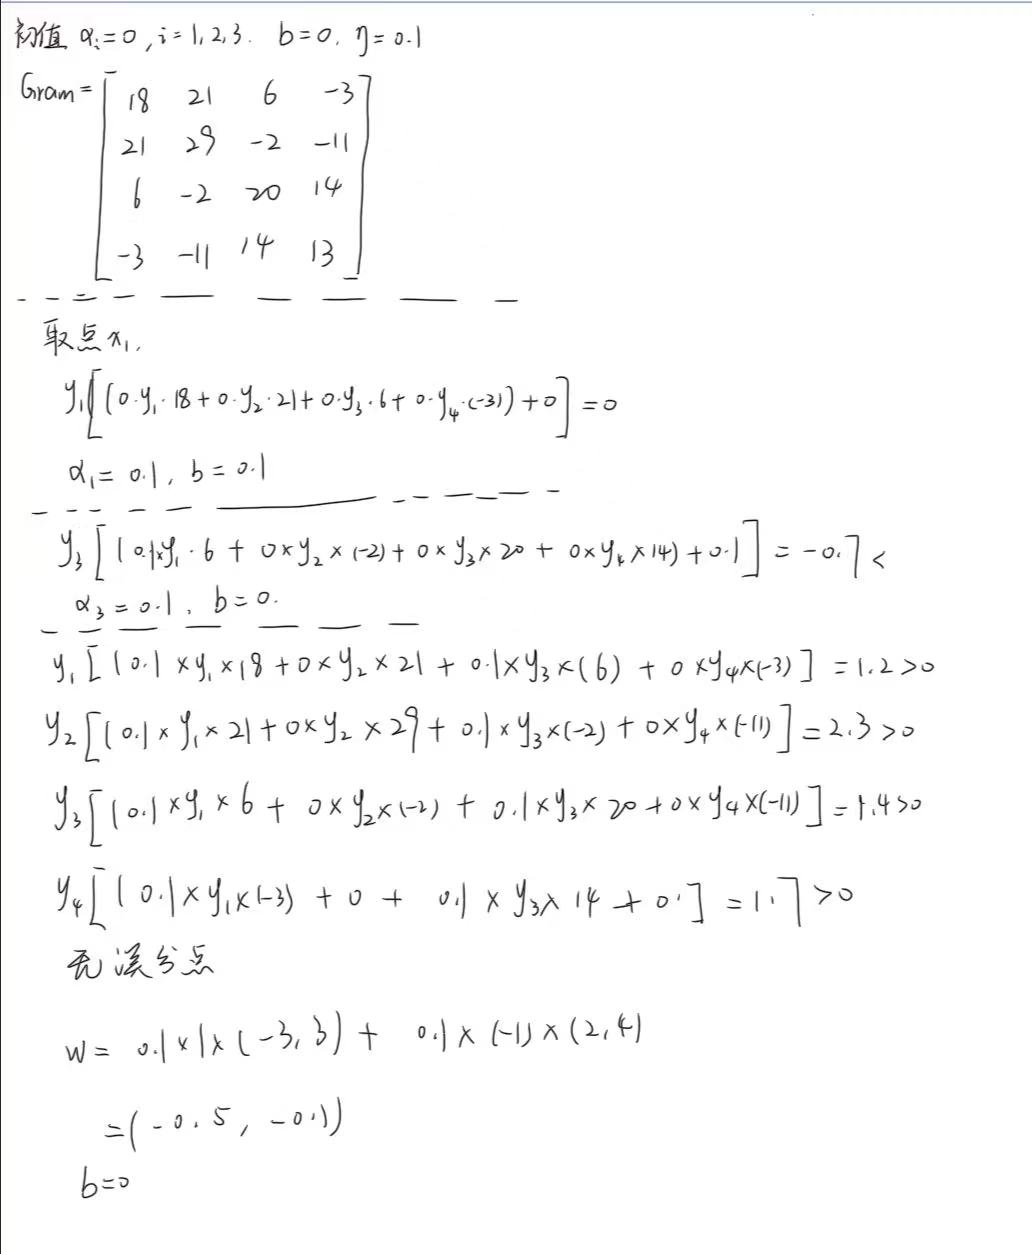 初值 α_i=0, i=1,2,3. b=0, η=0.1
Gram= [ 18 21 6 -3
21 29 -2 -11
6 -2 20 14
-3 -11 14 13 ]
取点 x₁,
y₁[(0·y₁·18+0·y₂·21+0·y₃·6+0·y₄·(-3))+0]=0
α₁=0.1, b=0.1
y₃[(0.1×y₁·6+0×y₂×(-2)+0×y₃×20+0×y₄×14)+0.1]=-0.7<
α₃=0.1, b=0.
y₁[(0.1×y₁×18+0×y₂×21+0.1×y₃×(6)+0×y₄×(-3)]=1.2>0
y₂[(0.1×y₁×21+0×y₂×29+0.1×y₃×(-2)+0×y₄×(-11)]=2.3>0
y₃[(0.1×y₁×6+0×y₂×(-2)+0.1×y₃×20+0×y₄×(-11)]=1.4>0
y₄[(0.1×y₁×(-3)+0+0.1×y₃×14+0·]=1.7>0
无误分点
w= 0.1×1×(-3,3)+0.1×(-1)×(2,4)
=(-0.5,-0.1)
b=0